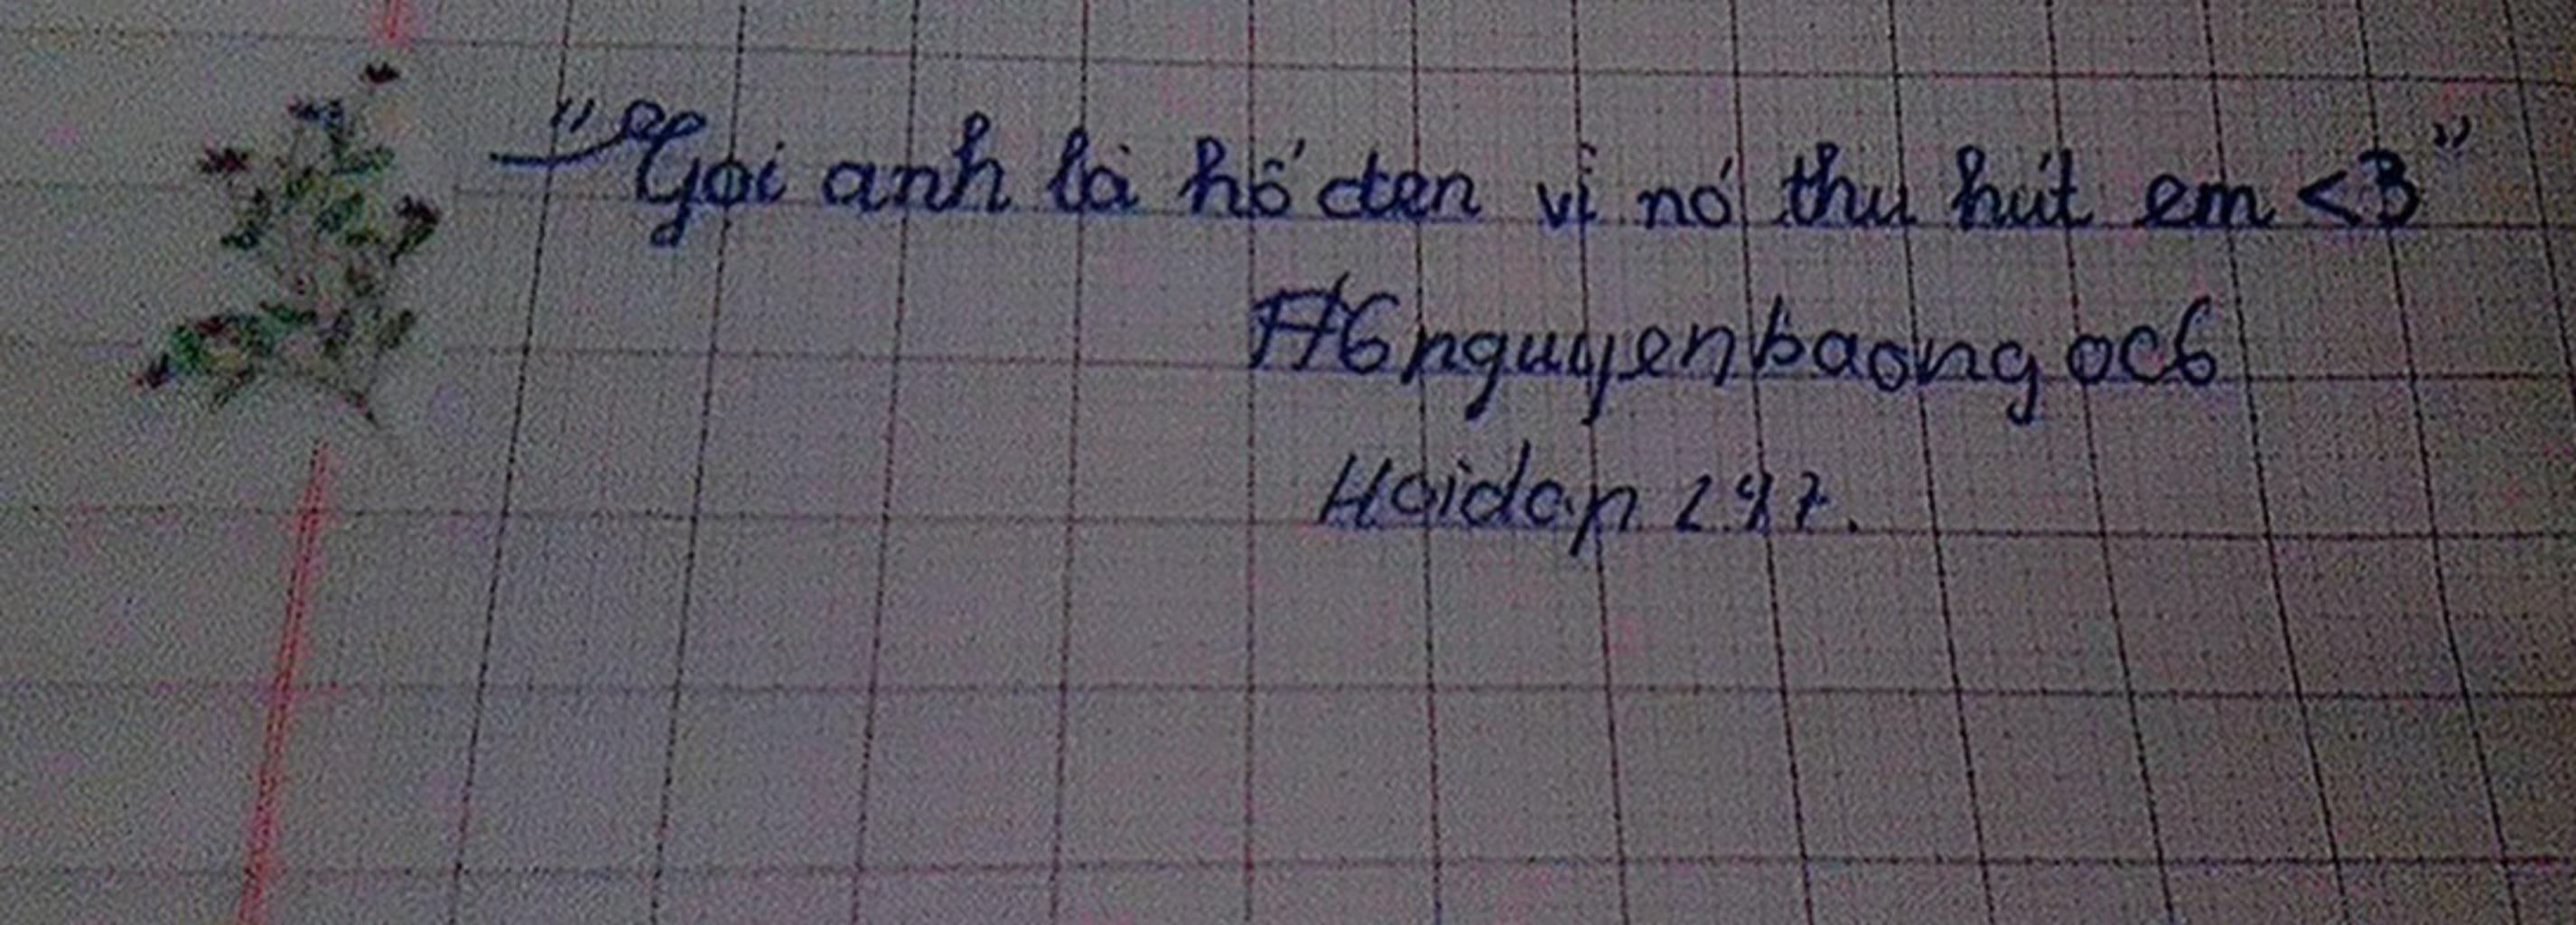 "Gọi anh là hố đen vì nó thu hút em <3"
#Gnguyenbaongoc6
Hoidap 247.